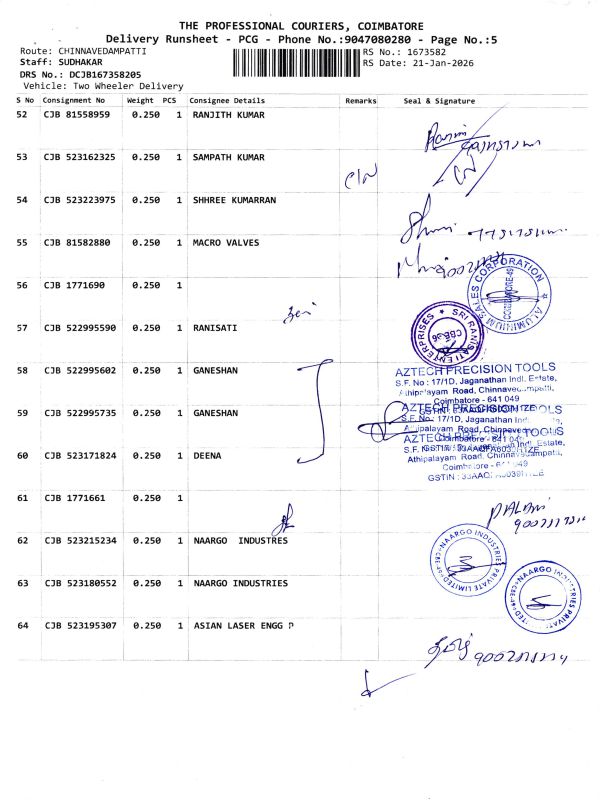 THE PROFESSIONAL COURIERS, COIMBATORE
Delivery Runsheet - PCG - Phone No.:9047080280 - Page No.:5
Route: CHINNAVEDAMPATTI RS No.: 1673582
Staff: SUDHAKAR RS Date: 21-Jan-2026
DRS No.: DCJB167358205
Vehicle: Two Wheeler Delivery
S No Consignment No Weight PCS Consignee Details Remarks Seal & Signature
52 CJB 81558959 0.250 1 RANJITH KUMAR
53 CJB 523162325 0.250 1 SAMPATH KUMAR
54 CJB 523223975 0.250 1 SHHREE KUMARRAN
55 CJB 81582880 0.250 1 MACRO VALVES
56 CJB 1771690 0.250 1
ALUMINIUM SALES CORPORATION
COIMBATORE-49
57 CJB 522995590 0.250 1 RANISATI
SRI RANISATI ENTERPRISES
58 CJB 522995602 0.250 1 GANESHAN
AZTECH PRECISION TOOLS
S.F. No : 17/1D, Jaganathan Indl. Estate,
Athipalayam Road, Chinnavedampatti,
Coimbatore - 641 049
59 CJB 522995735 0.250 1 GANESHAN
AZTECH PRECISION TOOLS
S.F. No : 17/1D, Jaganathan Indl
Athipalayam Road, Chinnavedampatti,
60 CJB 523171824 0.250 1 DEENA
AZTECH PRECISION TOOLS
Indl. Estate,
Athipalayam Road, Chinnavedampatti,
Coimbatore - 641 049
GSTIN : 33AAQFA6039H1ZE
61 CJB 1771661 0.250 1
PALANI
62 CJB 523215234 0.250 1 NAARGO INDUSTRES
NAARGO INDUSTRIES PRIVATE LIMITED
63 CJB 523180552 0.250 1 NAARGO INDUSTRIES
NAARGO INDUSTRIES PRIVATE
64 CJB 523195307 0.250 1 ASIAN LASER ENGG P